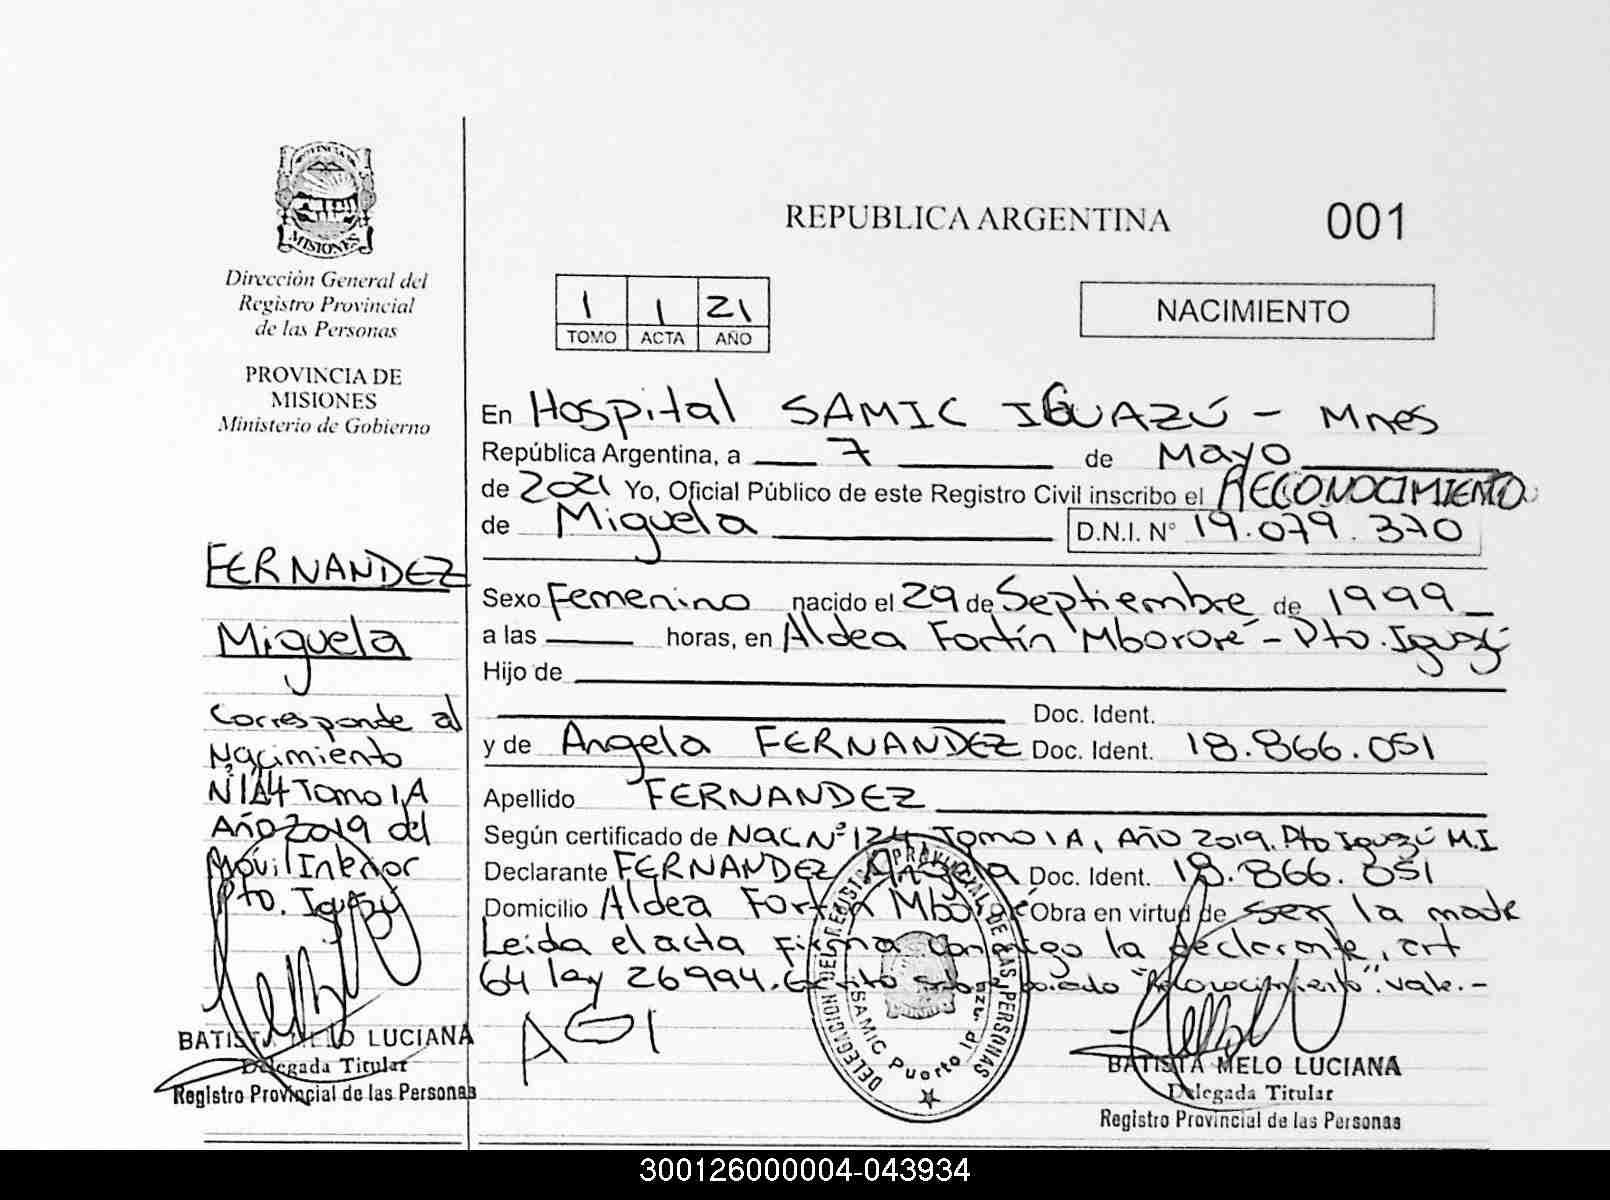 PROVINCIA DE
MISIONES
Dirección General del
Registro Provincial
de las Personas
PROVINCIA DE
MISIONES
Ministerio de Gobierno
FERNANDEZ
Miguela
Corresponde al
Nacimiento
Tomo 1A
Año 2019 del
Móvil Interior
Pto. Iguazú
BATISTA MELO LUCIANA
Delegada Titular
Registro Provincial de las Personas
REPUBLICA ARGENTINA
001
1 1 21
TOMO ACTA AÑO
NACIMIENTO
En Hospital SAMIC IGUAZÚ - Mnes
República Argentina, a 7 de Mayo
de 2021 Yo, Oficial Público de este Registro Civil inscribo el RECONOCIMIENTO
de Miguela D.N.I. N° 19.079.370
Sexo Femenino nacido el 29 de Septiembre de 1999
a las horas, en Aldea Fortín Mbororé - Pto. Iguazú
Hijo de
Doc. Ident.
y de Angela FERNANDEZ Doc. Ident. 18.866.051
Apellido FERNANDEZ
Según certificado de Nac N° 124 Tomo 1 A, Año 2019. Pto Iguazú M.I
Declarante FERNANDEZ Angela Doc. Ident. 18.866.051
Domicilio Aldea Fortín Mbororé Obra en virtud de ser la madre
Leida el acta firma conmigo la declarante, art
64 ley 26994. Escrito sobre borrado "Reconocimiento". Vale.-
DELEGACION DEL REGISTRO PROVINCIAL DE LAS PERSONAS
SAMIC Puerto Iguazú
BATISTA MELO LUCIANA
Delegada Titular
Registro Provincial de las Personas
300126000004-043934